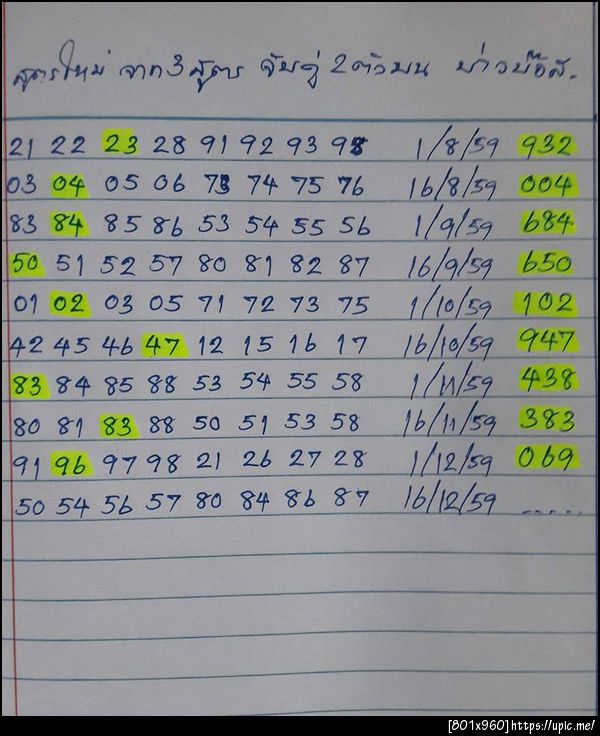 สูตรใหม่ จาก 3 สูตร จับคู่ 2 ตัวบน บ่าวบ๊อส.
21 22 23 28 91 92 93 98 1/8/59 932
03 04 05 06 73 74 75 76 16/8/59 004
83 84 85 86 53 54 55 56 1/9/59 684
50 51 52 57 80 81 82 87 16/9/59 650
01 02 03 05 71 72 73 75 1/10/59 102
42 45 46 47 12 15 16 17 16/10/59 947
83 84 85 88 53 54 55 58 1/11/59 438
80 81 83 88 50 51 53 58 16/11/59 383
91 96 97 98 21 26 27 28 1/12/59 069
50 54 56 57 80 84 86 87 16/12/59 .....
[801x960]https://upic.me/